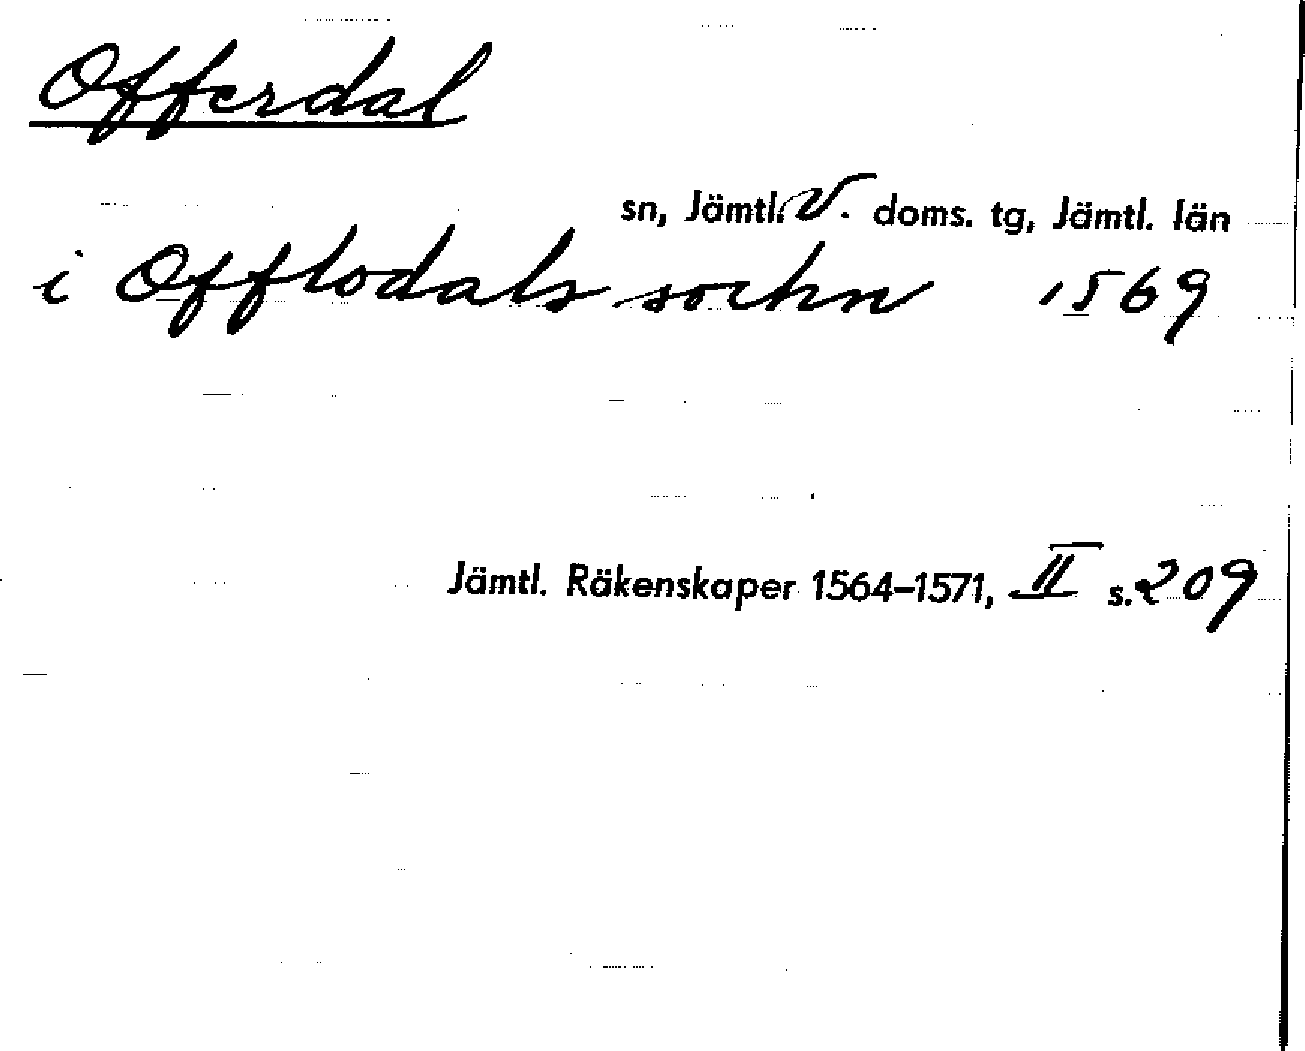 Offerdal
sn, Jämtl. V. doms. tg, Jämtl. län
i Offlodals sochn 1569
Jämtl. Räkenskaper 1564–1571, II s. 209